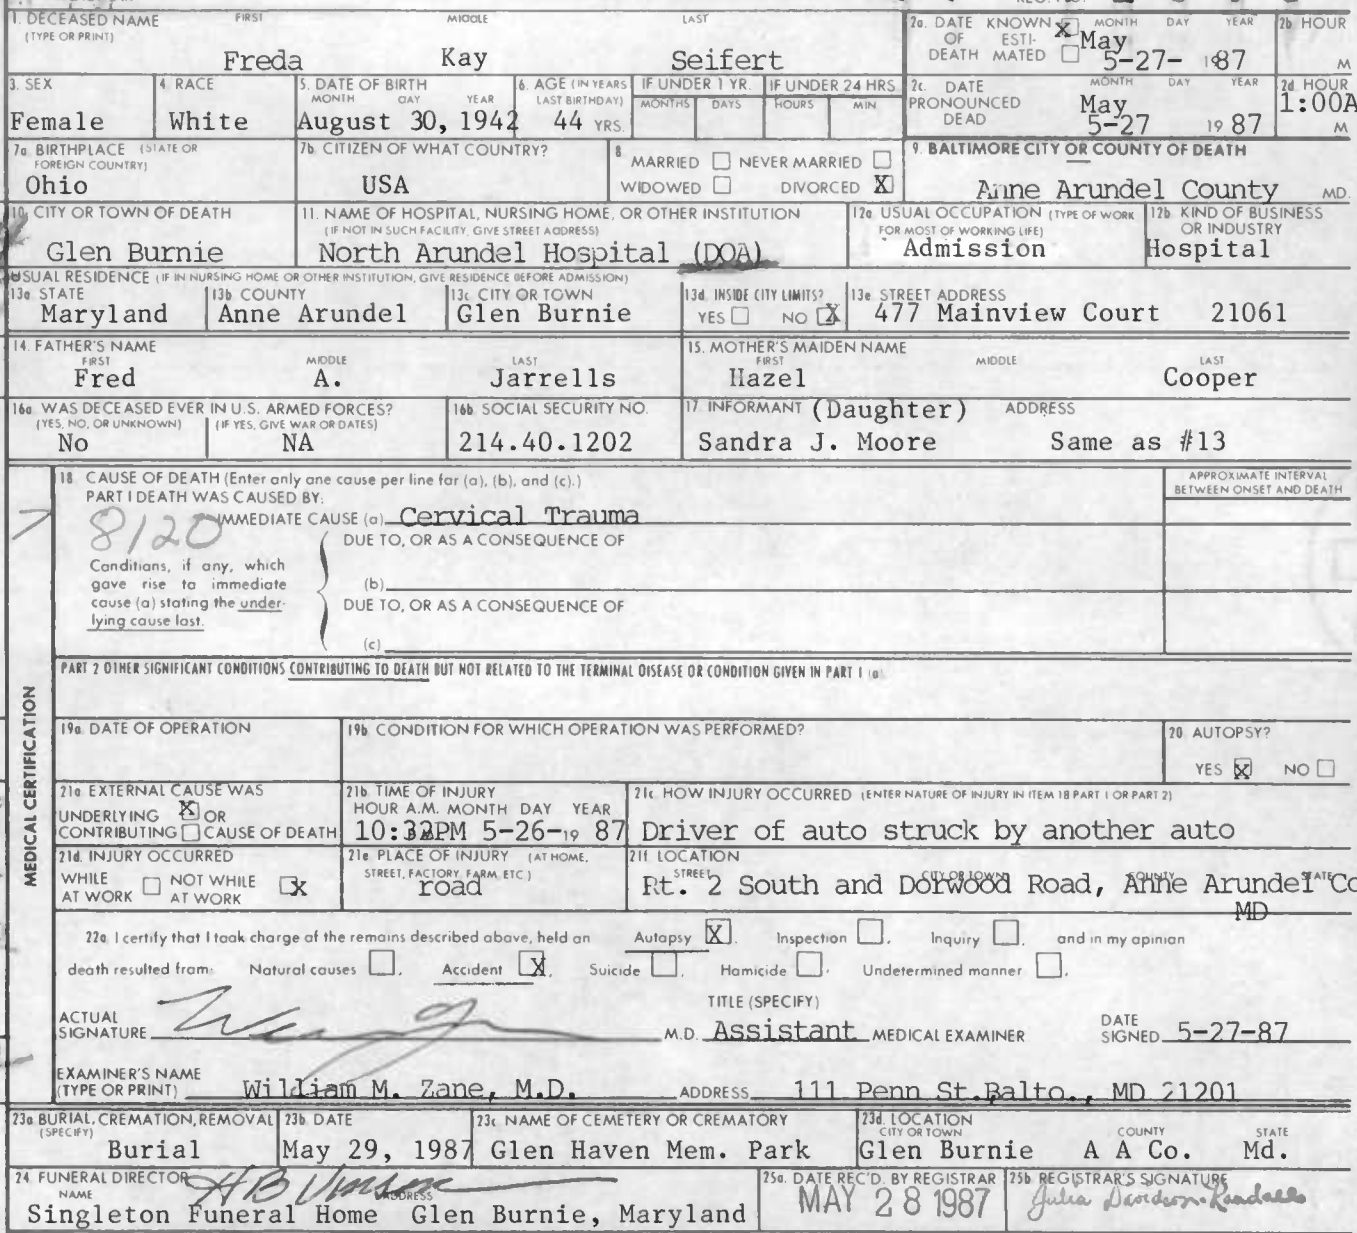 1. DECEASED NAME FIRST MIDDLE LAST
(TYPE OR PRINT)
Freda Kay Seifert
2a. DATE KNOWN X MONTH DAY YEAR
OF ESTI-
DEATH MATED
May
5-27- 1987
2b. HOUR
M
3. SEX
Female
4. RACE
White
5. DATE OF BIRTH
MONTH DAY YEAR
August 30, 1942
6. AGE (IN YEARS
LAST BIRTHDAY)
44 YRS.
IF UNDER 1 YR.
MONTHS DAYS
IF UNDER 24 HRS.
HOURS MIN
2c. DATE MONTH DAY YEAR
PRONOUNCED
DEAD
May
5-27 19 87
2d. HOUR
1:00A
M
7a. BIRTHPLACE (STATE OR
FOREIGN COUNTRY)
Ohio
7b. CITIZEN OF WHAT COUNTRY?
USA
8
MARRIED NEVER MARRIED
WIDOWED DIVORCED X
9. BALTIMORE CITY OR COUNTY OF DEATH
Anne Arundel County MD.
10. CITY OR TOWN OF DEATH
Glen Burnie
11. NAME OF HOSPITAL, NURSING HOME, OR OTHER INSTITUTION
(IF NOT IN SUCH FACILITY, GIVE STREET ADDRESS)
North Arundel Hospital (DOA)
12a. USUAL OCCUPATION (TYPE OF WORK
FOR MOST OF WORKING LIFE)
Admission
12b. KIND OF BUSINESS
OR INDUSTRY
Hospital
USUAL RESIDENCE (IF IN NURSING HOME OR OTHER INSTITUTION, GIVE RESIDENCE BEFORE ADMISSION)
13a. STATE
Maryland
13b. COUNTY
Anne Arundel
13c. CITY OR TOWN
Glen Burnie
13d. INSIDE CITY LIMITS?
YES NO X
13e. STREET ADDRESS
477 Mainview Court 21061
14. FATHER'S NAME
FIRST MIDDLE LAST
Fred A. Jarrells
15. MOTHER'S MAIDEN NAME
FIRST MIDDLE LAST
Hazel Cooper
16a. WAS DECEASED EVER IN U.S. ARMED FORCES?
(YES, NO, OR UNKNOWN) (IF YES, GIVE WAR OR DATES)
No NA
16b. SOCIAL SECURITY NO.
214.40.1202
17. INFORMANT (Daughter) ADDRESS
Sandra J. Moore Same as #13
MEDICAL CERTIFICATION
18. CAUSE OF DEATH (Enter only one cause per line for (a), (b), and (c).)
PART I DEATH WAS CAUSED BY:
APPROXIMATE INTERVAL
BETWEEN ONSET AND DEATH
8120
IMMEDIATE CAUSE (a) Cervical Trauma
DUE TO, OR AS A CONSEQUENCE OF
Conditions, if any, which
gave rise to immediate
cause (a) stating the under-
lying cause last.
(b)
DUE TO, OR AS A CONSEQUENCE OF
(c)
PART 2 OTHER SIGNIFICANT CONDITIONS CONTRIBUTING TO DEATH BUT NOT RELATED TO THE TERMINAL DISEASE OR CONDITION GIVEN IN PART I (a)
19a. DATE OF OPERATION
19b. CONDITION FOR WHICH OPERATION WAS PERFORMED?
20. AUTOPSY?
YES X NO
21a. EXTERNAL CAUSE WAS
UNDERLYING X OR
CONTRIBUTING CAUSE OF DEATH
21b. TIME OF INJURY
HOUR A.M. MONTH DAY YEAR
10:32PM 5-26-19 87
21c. HOW INJURY OCCURRED (ENTER NATURE OF INJURY IN ITEM 18 PART 1 OR PART 2)
Driver of auto struck by another auto
21d. INJURY OCCURRED
WHILE NOT WHILE X
AT WORK AT WORK
21e. PLACE OF INJURY (AT HOME,
STREET, FACTORY, FARM, ETC.)
road
21f. LOCATION
STREET CITY OR TOWN COUNTY STATE
Rt. 2 South and Dorwood Road, Anne Arundel Co
MD
22a. I certify that I took charge of the remains described above, held an Autopsy X, Inspection , Inquiry , and in my opinion
death resulted from: Natural causes , Accident X, Suicide , Homicide , Undetermined manner .
ACTUAL
SIGNATURE
TITLE (SPECIFY)
M.D. Assistant MEDICAL EXAMINER
DATE
SIGNED 5-27-87
EXAMINER'S NAME
(TYPE OR PRINT) William M. Zane, M.D. ADDRESS 111 Penn St. Balto., MD 21201
23a. BURIAL, CREMATION, REMOVAL
(SPECIFY)
Burial
23b. DATE
May 29, 1987
23c. NAME OF CEMETERY OR CREMATORY
Glen Haven Mem. Park
23d. LOCATION
CITY OR TOWN COUNTY STATE
Glen Burnie A A Co. Md.
24. FUNERAL DIRECTOR
NAME ADDRESS
HB Vinson
Singleton Funeral Home Glen Burnie, Maryland
25a. DATE REC'D. BY REGISTRAR
MAY 28 1987
25b. REGISTRAR'S SIGNATURE
Julia Davidson-Randall